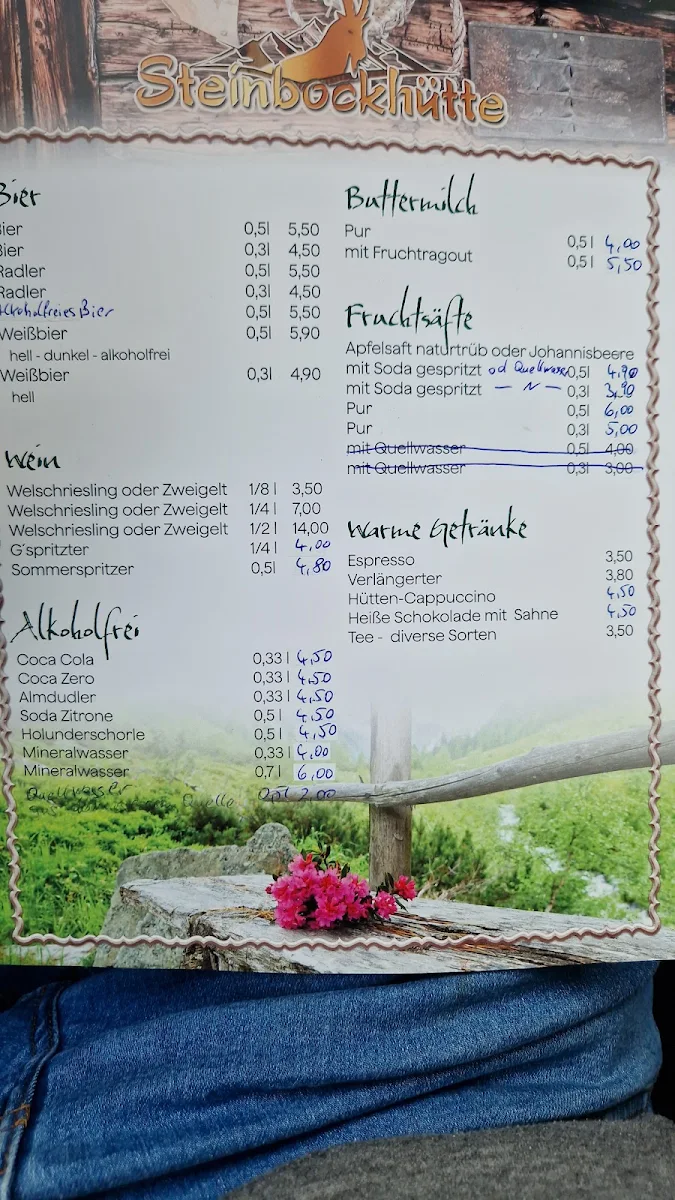 Steinbockhütte
Bier
Bier 0,5l 5,50
Bier 0,3l 4,50
Radler 0,5l 5,50
Radler 0,3l 4,50
Alkoholfreies Bier 0,5l 5,50
Weißbier 0,5l 5,90
hell - dunkel - alkoholfrei
Weißbier 0,3l 4,90
hell
Wein
Welschriesling oder Zweigelt 1/8 l 3,50
Welschriesling oder Zweigelt 1/4 l 7,00
Welschriesling oder Zweigelt 1/2 l 14,00
G'spritzter 1/4 l 4,00
Sommerspritzer 0,5l 4,80
Alkoholfrei
Coca Cola 0,33 l 4,50
Coca Zero 0,33 l 4,50
Almdudler 0,33 l 4,50
Soda Zitrone 0,5 l 4,50
Holunderschorle 0,5 l 4,50
Mineralwasser 0,33 l 4,00
Mineralwasser 0,7 l 6,00
Quellwasser Quelle 0,5l 2,00
Buttermilch
Pur 0,5 l 4,00
mit Fruchtragout 0,5 l 5,50
Fruchtsäfte
Apfelsaft naturtrüb oder Johannisbeere
mit Soda gespritzt od Quellwasser 0,5l 4,90
mit Soda gespritzt — N — 0,3l 3,90
Pur 0,5l 6,00
Pur 0,3l 5,00
mit Quellwasser 0,5l 4,00
mit Quellwasser 0,3l 3,00
Warme Getränke
Espresso 3,50
Verlängerter 3,80
Hütten-Cappuccino 4,50
Heiße Schokolade mit Sahne 4,50
Tee - diverse Sorten 3,50